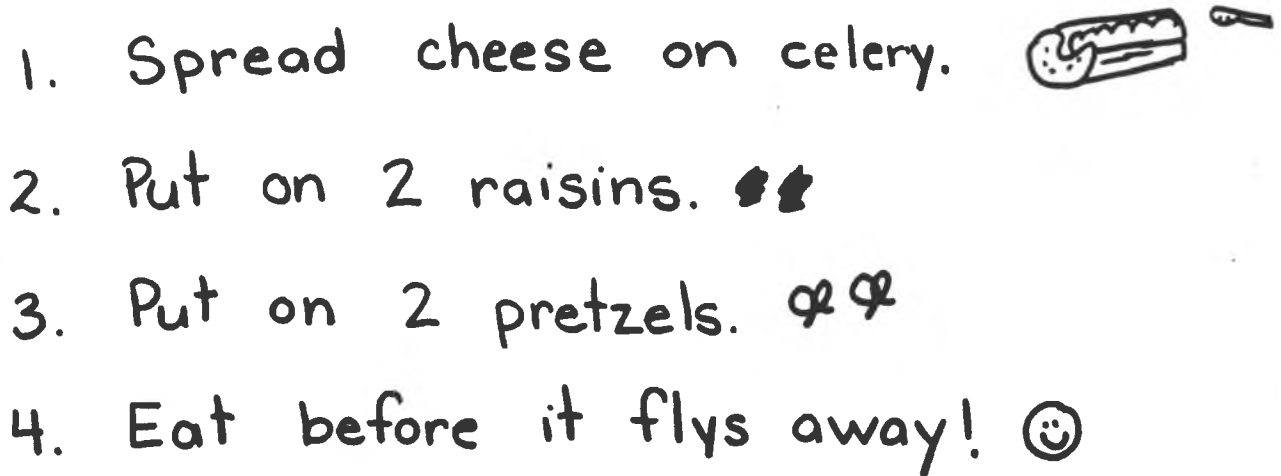 1. Spread cheese on celery.
2. Put on 2 raisins.
3. Put on 2 pretzels.
4. Eat before it flys away!